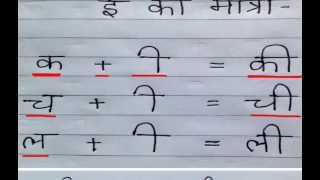 की मात्रा-
क + ी = की
च + ी = ची
ल + ी = ली